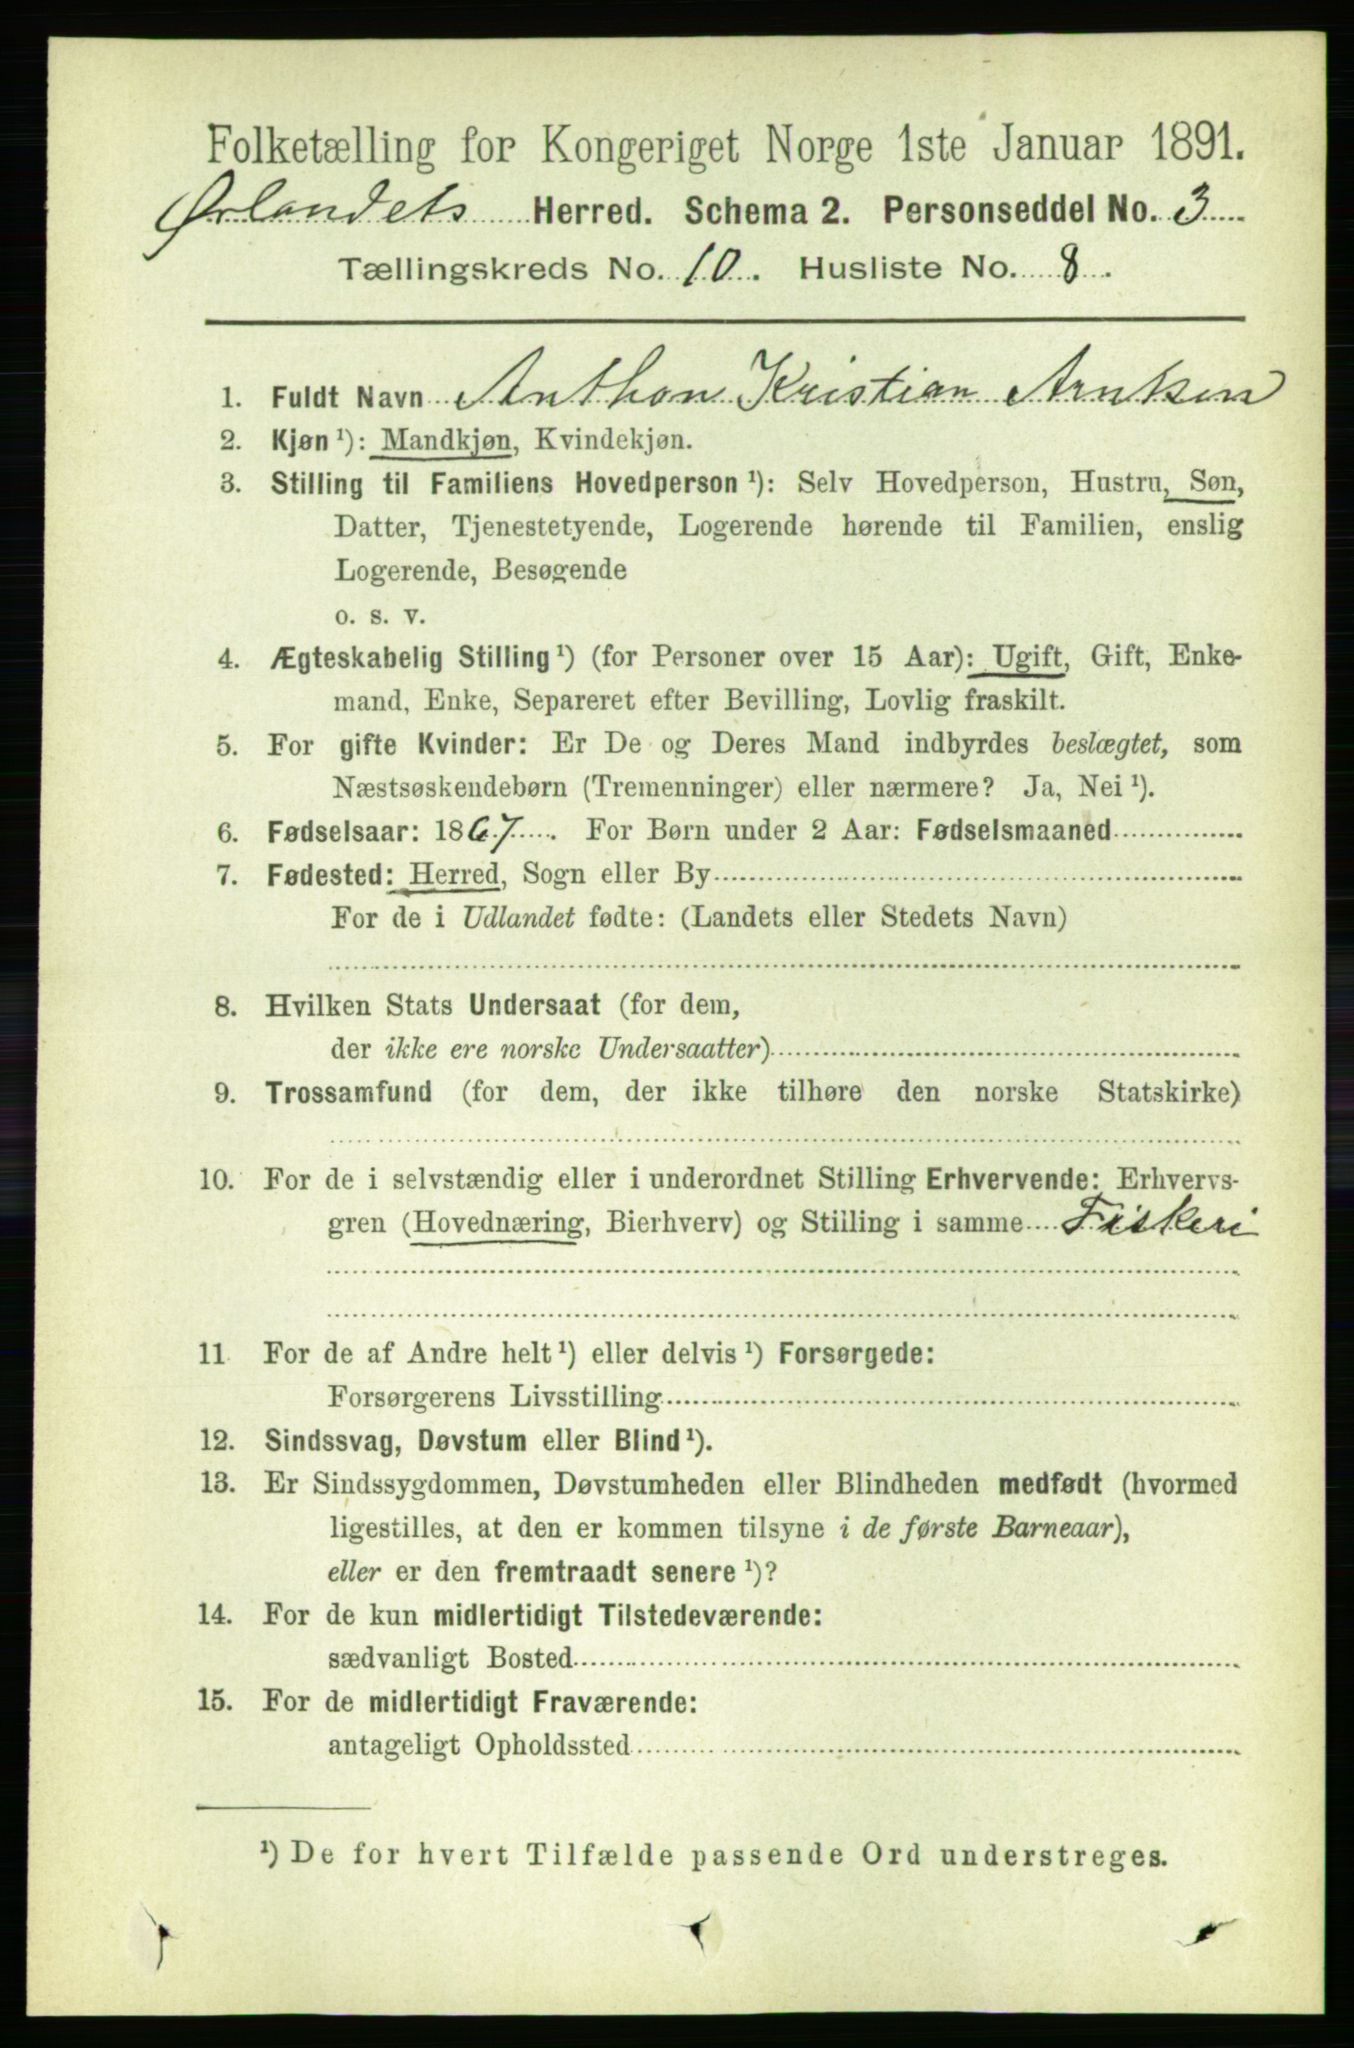 Folketælling for Kongeriget Norge 1ste Januar 1891.
Ørlandets Herred. Schema 2. Personseddel No. 3
Tællingskreds No. 10. Husliste No. 8.
1. Fuldt Navn Anthon Kristian Arntsen
2. Kjøn¹): Mandkjøn, Kvindekjøn.
3. Stilling til Familiens Hovedperson¹): Selv Hovedperson, Hustru, Søn,
Datter, Tjenestetyende, Logerende hørende til Familien, enslig
Logerende, Besøgende
o. s. v.
4. Ægteskabelig Stilling¹) (for Personer over 15 Aar): Ugift, Gift, Enke-
mand, Enke, Separeret efter Bevilling, Lovlig fraskilt.
5. For gifte Kvinder: Er De og Deres Mand indbyrdes beslægtet, som
Næstsøskendebørn (Tremenninger) eller nærmere? Ja, Nei¹).
6. Fødselsaar: 1867. For Børn under 2 Aar: Fødselsmaaned
7. Fødested: Herred, Sogn eller By
For de i Udlandet fødte: (Landets eller Stedets Navn)
8. Hvilken Stats Undersaat (for dem,
der ikke ere norske Undersaatter)
9. Trossamfund (for dem, der ikke tilhøre den norske Statskirke)
10. For de i selvstændig eller i underordnet Stilling Erhvervende: Erhvervs-
gren (Hovednæring, Bierhverv) og Stilling i samme Fiskeri
11 For de af Andre helt¹) eller delvis¹) Forsørgede:
Forsørgerens Livsstilling
12. Sindssvag, Døvstum eller Blind¹).
13. Er Sindssygdommen, Døvstumheden eller Blindheden medfødt (hvormed
ligestilles, at den er kommen tilsyne i de første Barneaar),
eller er den fremtraadt senere¹)?
14. For de kun midlertidigt Tilstedeværende:
sædvanligt Bosted
15. For de midlertidigt Fraværende:
antageligt Opholdssted
¹) De for hvert Tilfælde passende Ord understreges.